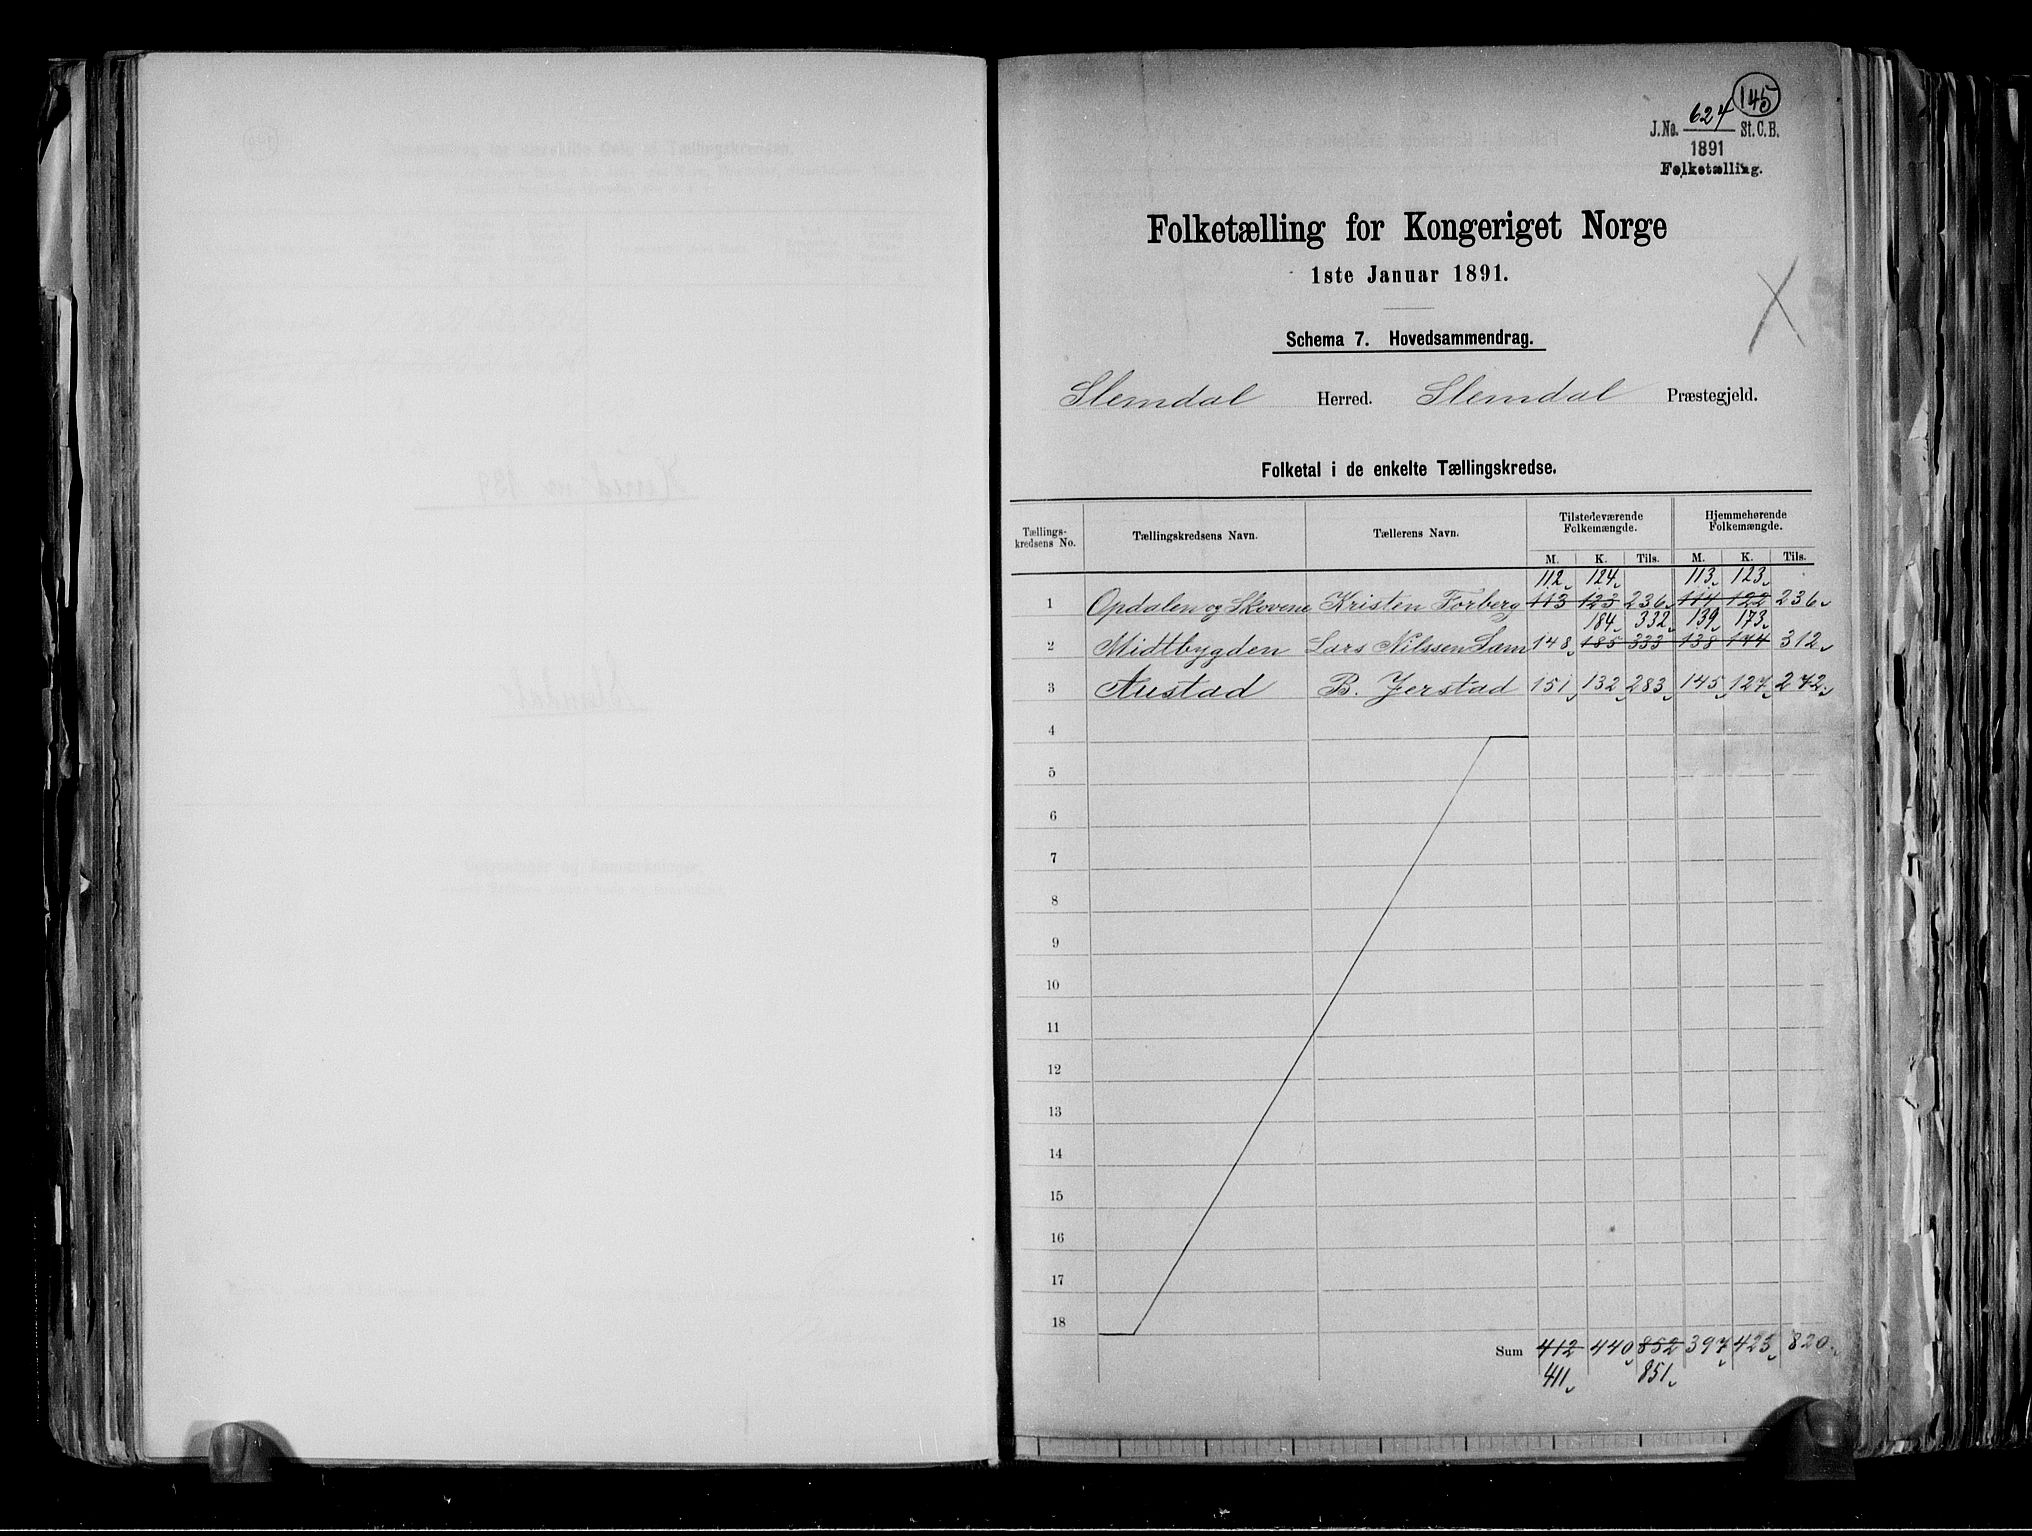 145
J.No. 624 St.C.B.
1891
Folketælling.
Folketælling for Kongeriget Norge
1ste Januar 1891.
Schema 7. Hovedsammendrag.
Slemdal Herred. Slemdal Præstegjeld.
Folketal i de enkelte Tællingskredse.
Tællings-kredsens No. Tællingskredsens Navn. Tællerens Navn. Tilstedeværende Folkemængde. Hjemmehørende Folkemængde.
M. K. Tils. M. K. Tils.
112 124 113 123
1 Opdalen og Skovene Kristen Forberg 113 123 236 114 122 236
184 332 139 173
2 Midtbygden Lars Nilssen Lam 148 185 333 138 174 312
3 Austad B. Jerstad 151 132 283 145 127 272
4
5
6
7
8
9
10
11
12
13
14
15
16
17
18
Sum 412 440 852 397 423 820
411 851